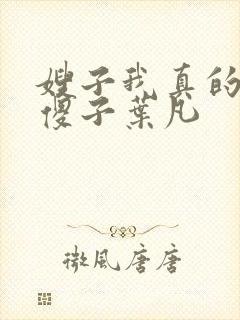 嫂子我真的
傻子葉凡
微風唐唐